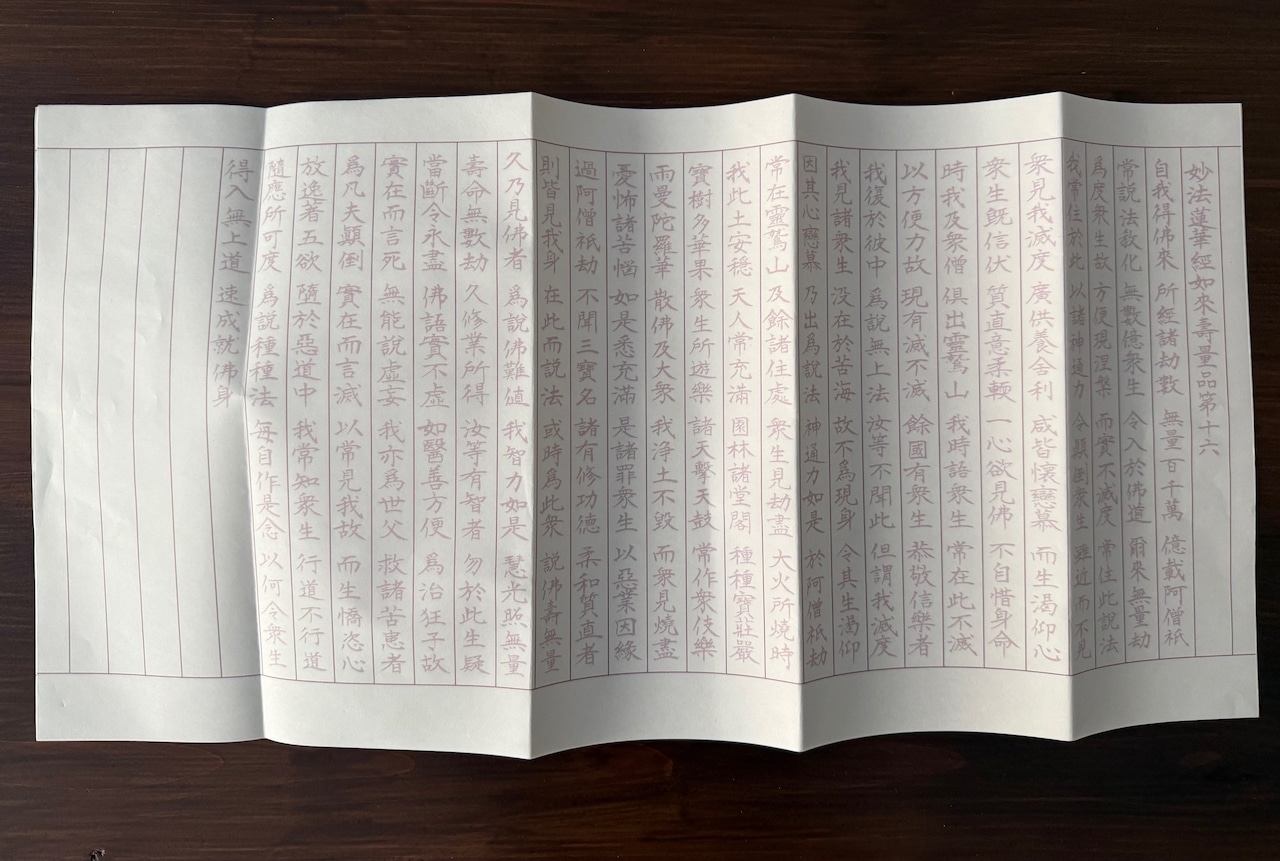 妙法蓮華經如來壽量品第十六
自我得佛來 所經諸劫數 無量百千萬 億載阿僧祇
常説法教化 無數億衆生 令入於佛道 爾來無量劫
爲度衆生故 方便現涅槃 而實不滅度 常住此説法
我常住於此 以諸神通力 令顚倒衆生 雖近而不見
衆見我滅度 廣供養舍利 咸皆懷戀慕 而生渇仰心
衆生既信伏 質直意柔輭 一心欲見佛 不自惜身命
時我及衆僧 倶出靈鷲山 我時語衆生 常在此不滅
以方便力故 現有滅不滅 餘國有衆生 恭敬信樂者
我復於彼中 爲説無上法 汝等不聞此 但謂我滅度
我見諸衆生 没在於苦海 故不爲現身 令其生渇仰
因其心戀慕 乃出爲説法 神通力如是 於阿僧祇劫
常在靈鷲山 及餘諸住處 衆生見劫盡 大火所燒時
我此土安穩 天人常充滿 園林諸堂閣 種種寶莊嚴
寶樹多華果 衆生所遊樂 諸天擊天鼓 常作衆伎樂
雨曼陀羅華 散佛及大衆 我淨土不毀 而衆見燒盡
憂怖諸苦惱 如是悉充滿 是諸罪衆生 以惡業因緣
過阿僧祇劫 不聞三寶名 諸有修功德 柔和質直者
則皆見我身 在此而説法 或時爲此衆 説佛壽無量
久乃見佛者 爲説佛難値 我智力如是 慧光照無量
壽命無數劫 久修業所得 汝等有智者 勿於此生疑
當斷令永盡 佛語實不虛 如醫善方便 爲治狂子故
實在而言死 無能説虛妄 我亦爲世父 救諸苦患者
爲凡夫顚倒 實在而言滅 以常見我故 而生憍恣心
放逸著五欲 墮於惡道中 我常知衆生 行道不行道
隨應所可度 爲説種種法 每自作是念 以何令衆生
得入無上道 速成就佛身